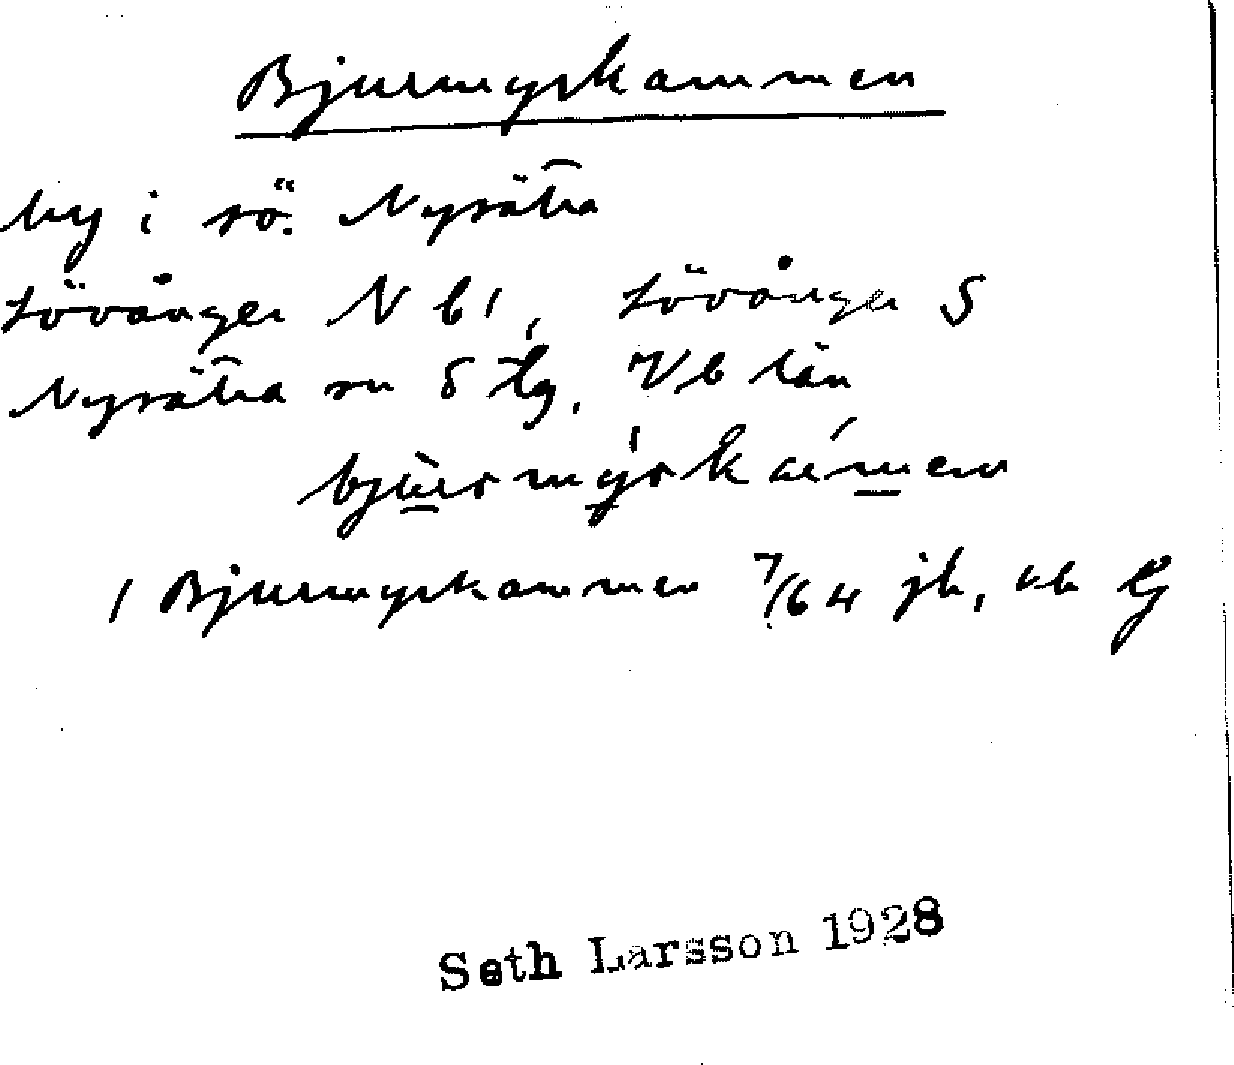 Bjurmyrkammen
by i sö. Nysätra
Lövånger N b1, Lövånger S
Nysätra sn S tg, Vb län
bjursmyrkammen
1 Bjurmyrkammen 7/64 jb,
Seth Larsson 1928